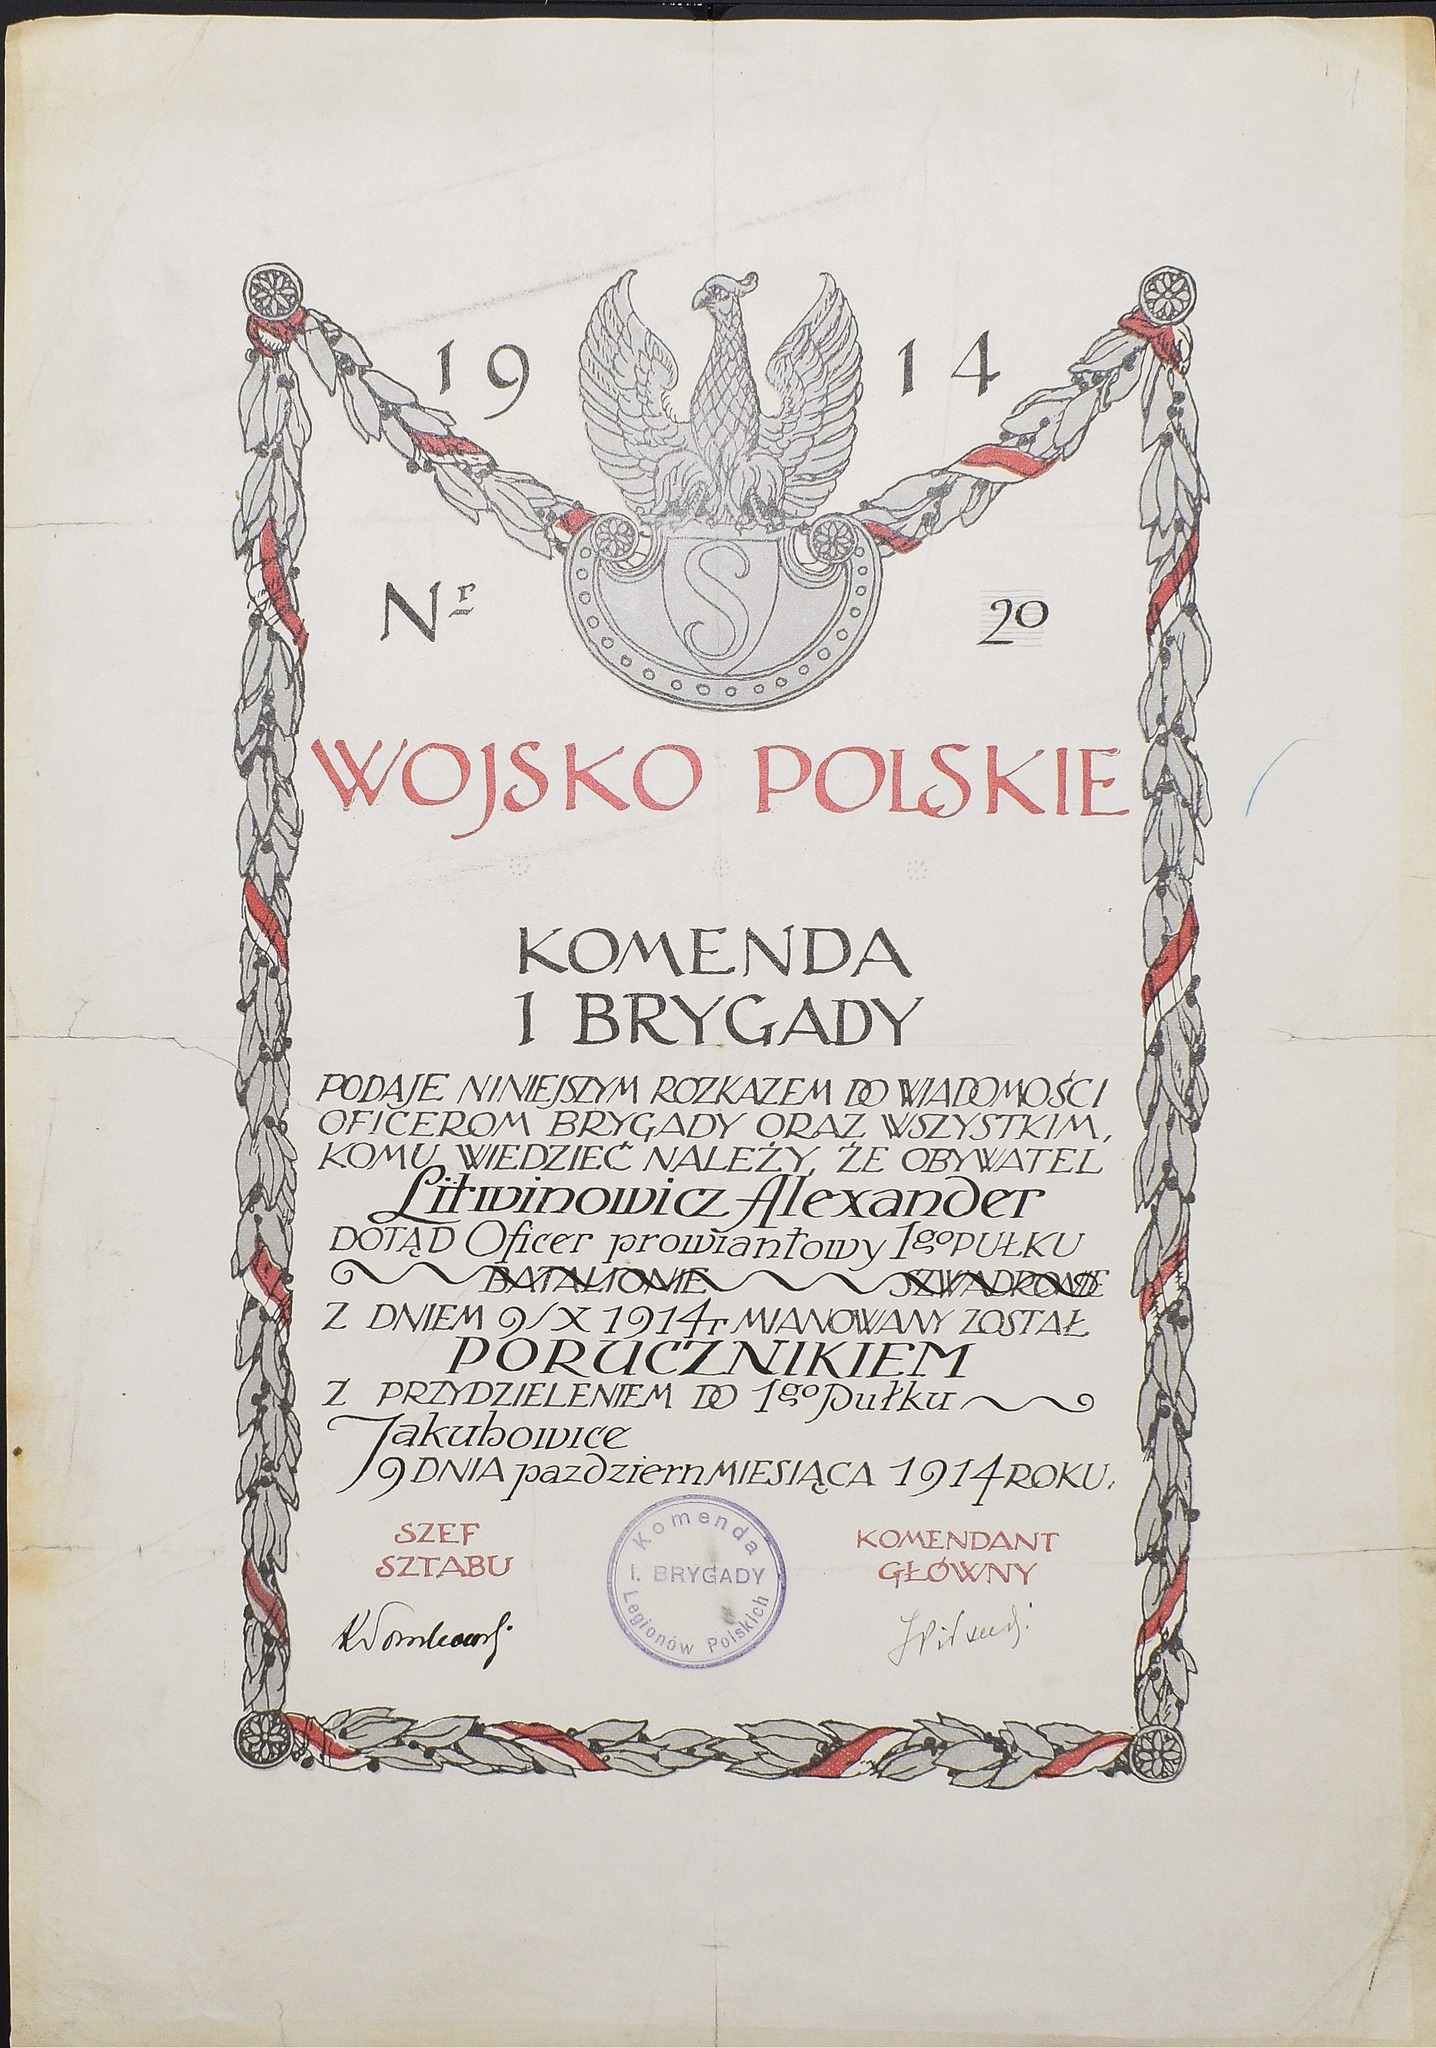 19 14
S
Nr 20
WOJSKO POLSKIE
KOMENDA
I BRYGADY
PODAJE NINIEJSZYM ROZKAZEM DO WIADOMOŚCI
OFICEROM BRYGADY ORAZ WSZYSTKIM,
KOMU WIEDZIEĆ NALEŻY, ŻE OBYWATEL
Litwinowicz Alexander
DOTĄD Oficer prowiantowy 1go PUŁKU
BATALIONIE SZWADRONIE
Z DNIEM 9/X 1914r MIANOWANY ZOSTAŁ
PORUCZNIKIEM
Z PRZYDZIELENIEM DO 1go Pułku
Jakubowice
9 DNIA pazdziern MIESIĄCA 1914 ROKU.
SZEF
SZTABU
Komenda
I. BRYGADY
Legionów Polskich
KOMENDANT
GŁÓWNY